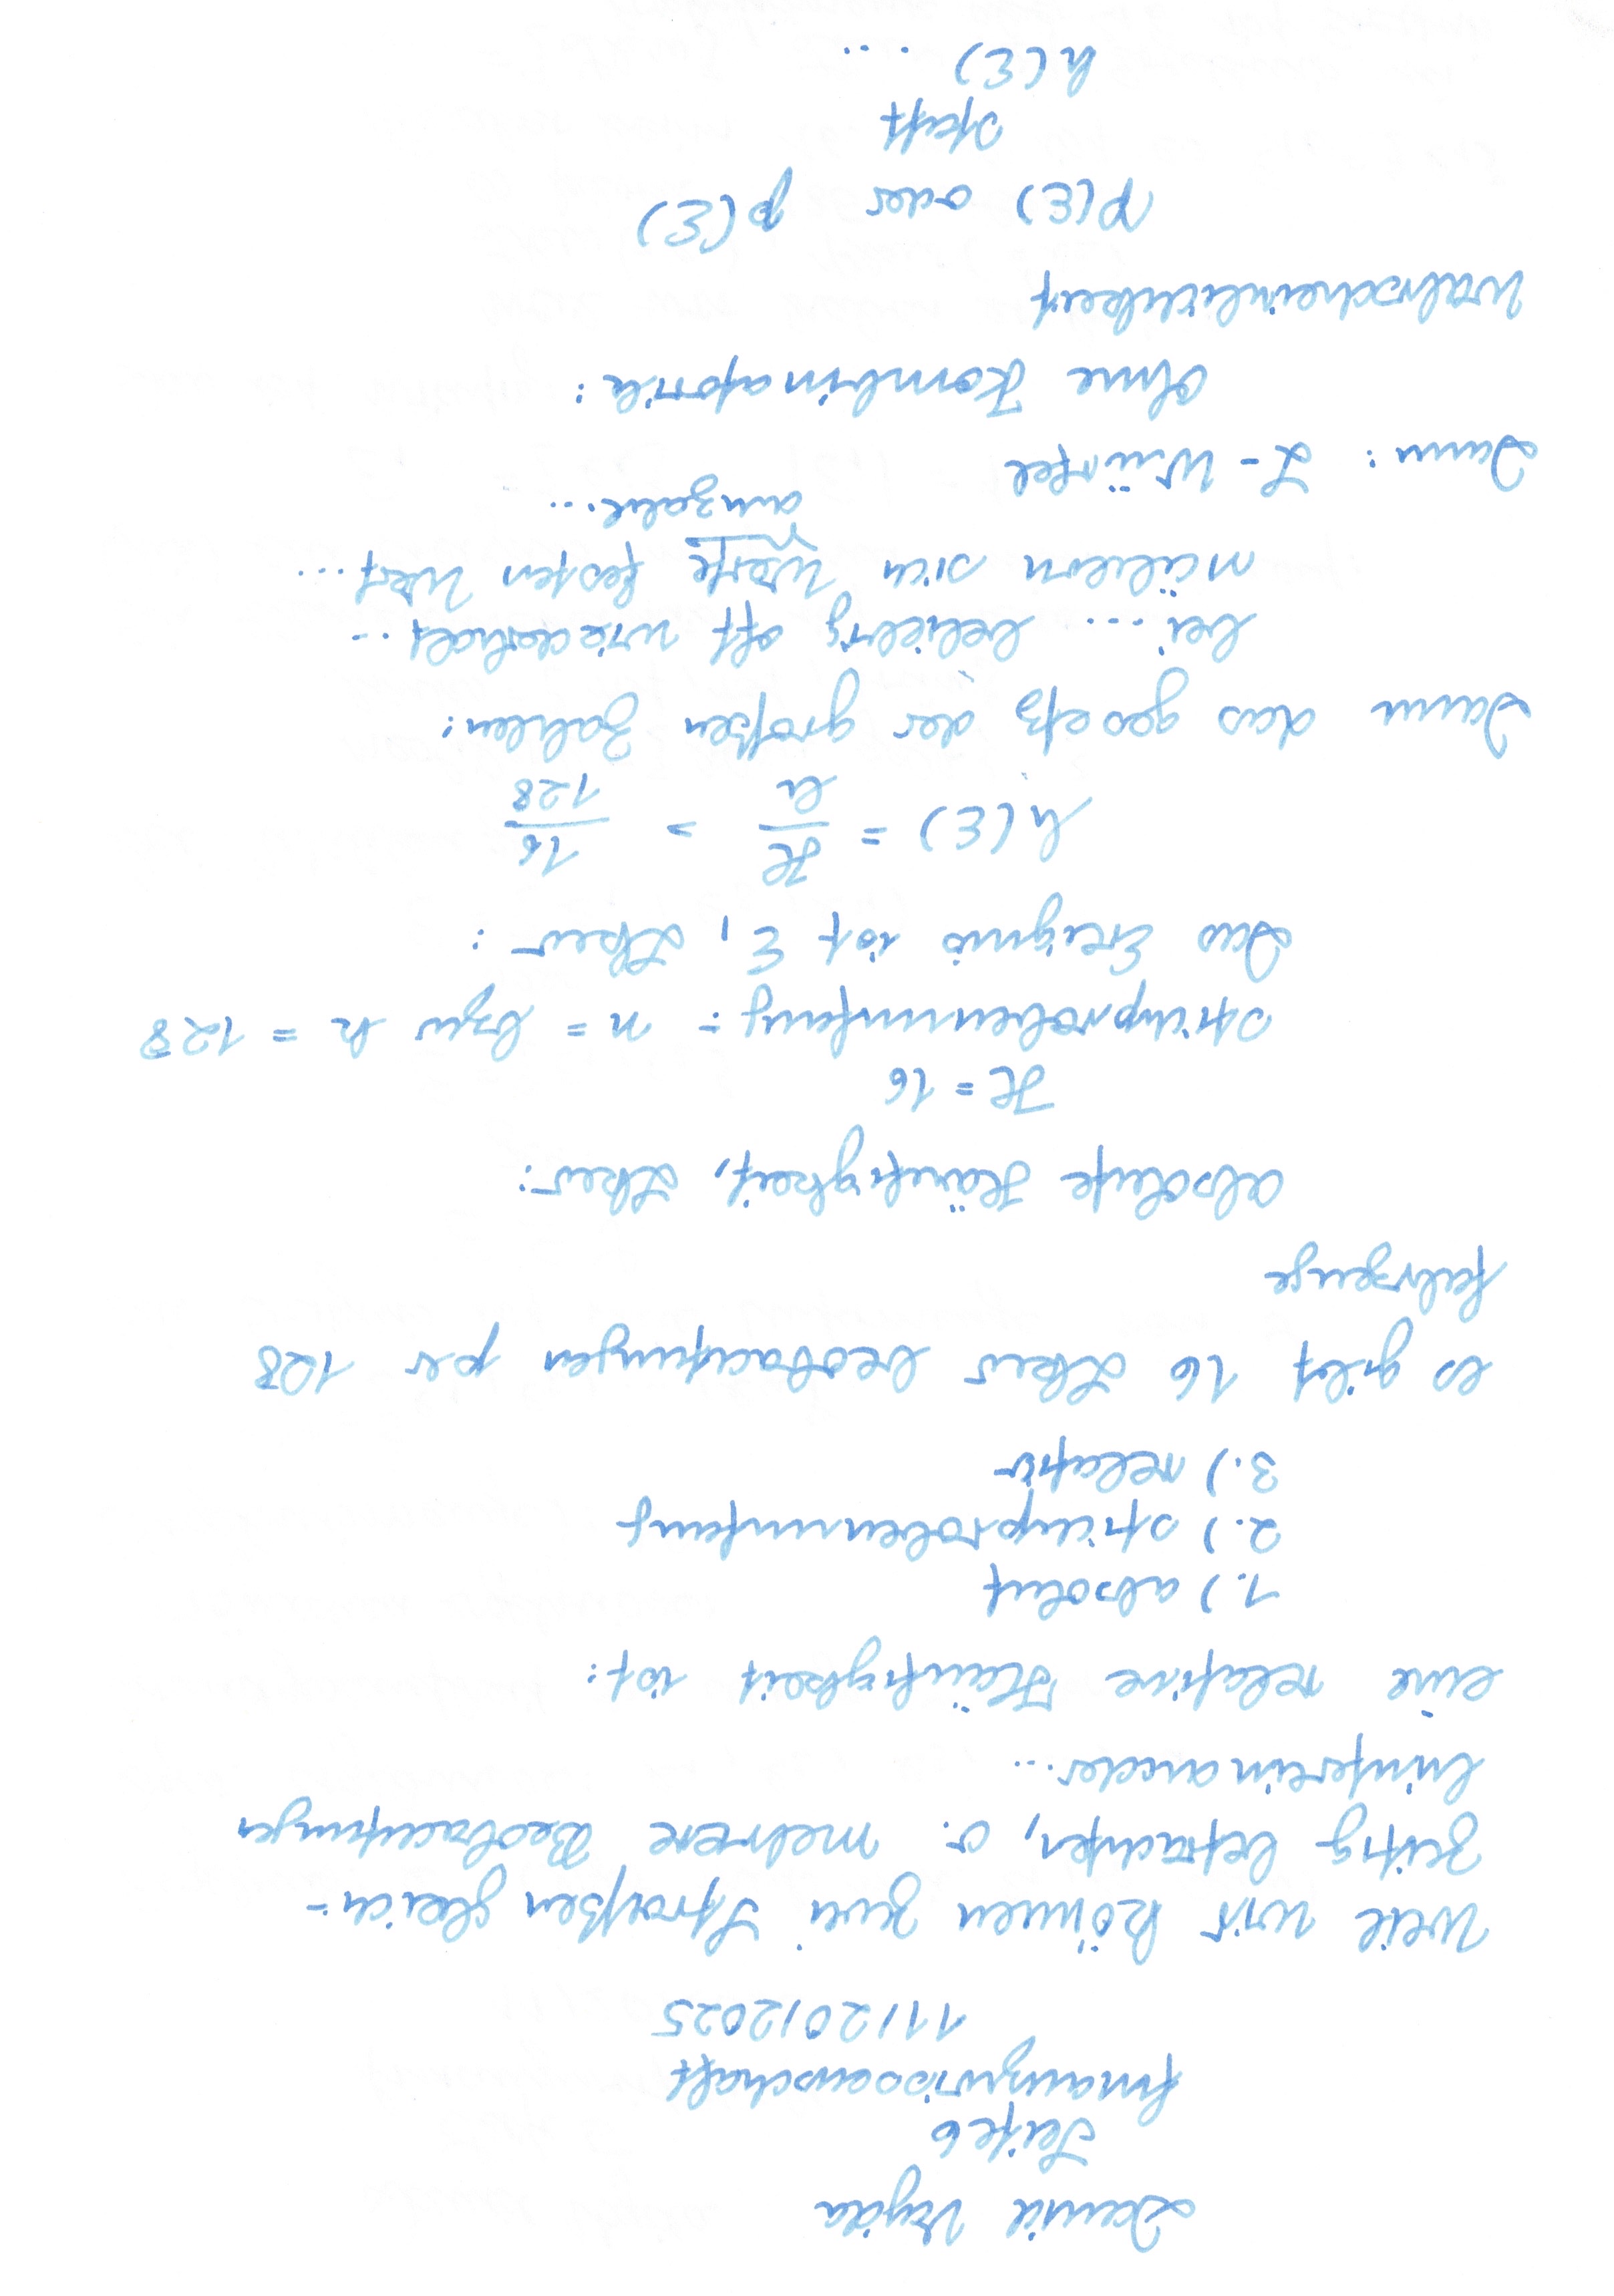 David Vajda
Seite 6
finanzwissenschaft
11/20/2025
Weil wir können zwei Straßen gleich-
zeitig betrachten, o. mehrere Beobachtungen
hintereinander...
eine relative Häufigkeit ist:
1.) absolut
2.) stichprobenumfang
3.) relativ
es gibt 16 Lkws beobachtungen per 128
fahrzeuge
absolute Häufigkeit, Lkws:
H = 16
stichprobenumfang: n = bzw k = 128
Das Ereignis ist E, Lkws:
h(E) = H/k = 16/128
Dann das gesetz der großen Zahlen:
bei ... beliebig oft wiederholt...
nähern sich Werte festen Wert...
anzahl...
Dann: L-Würfel
Ohne Kombinatorik:
Wahrscheinlichkeit
P(E) oder p(E)
statt
h(E) ...